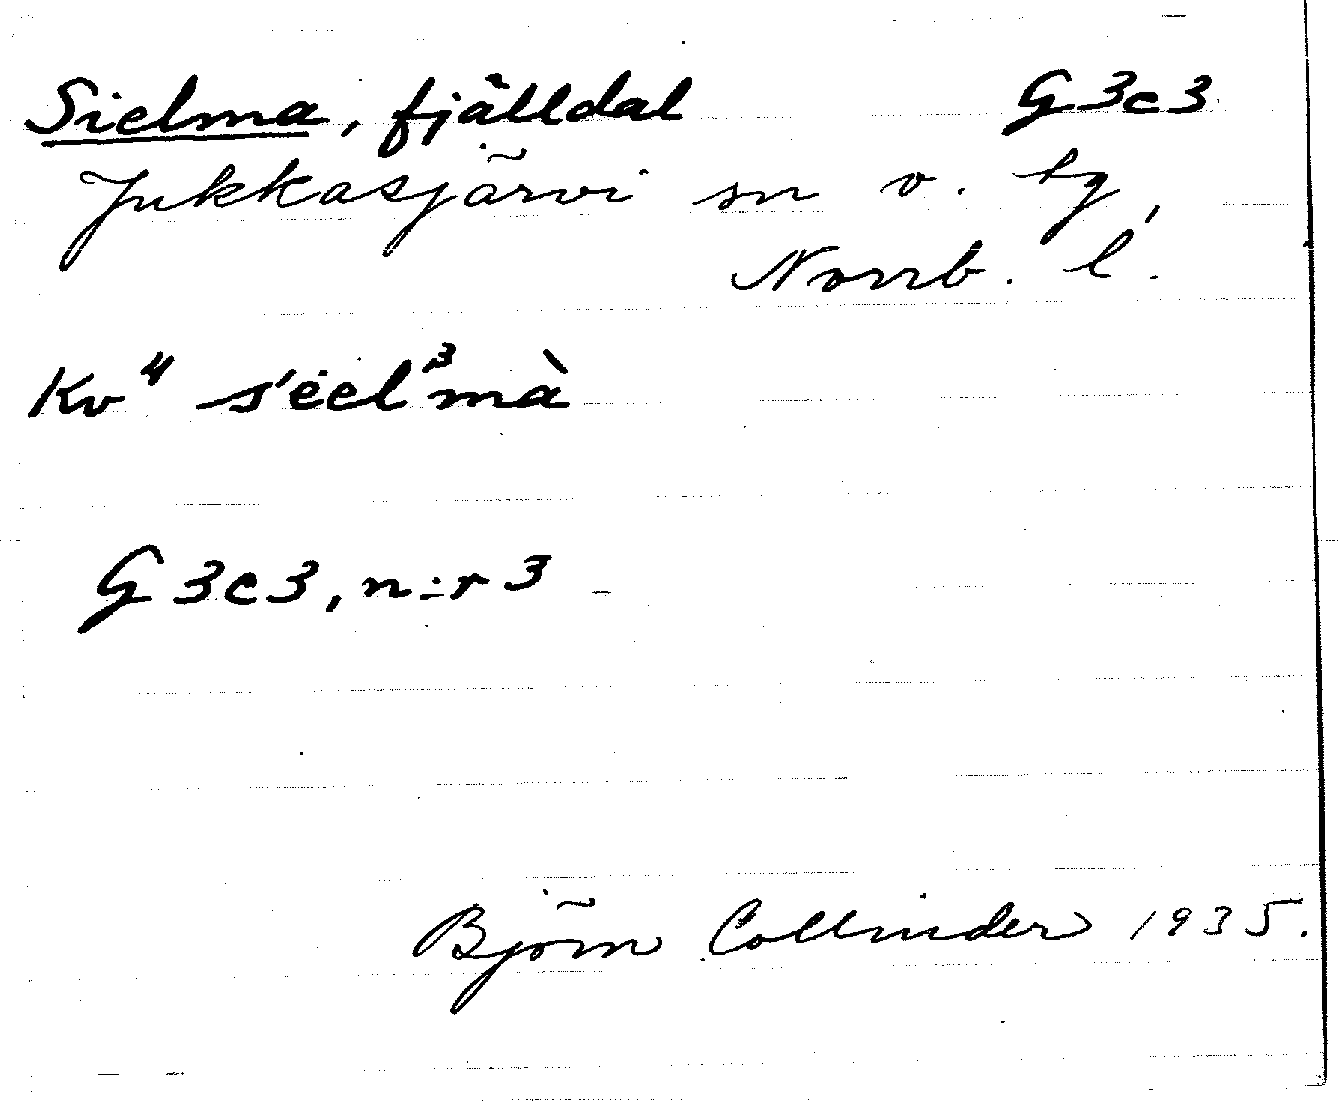 Sielma, fjälldal G3c3
Jukkasjärvi sn o. tg,
Norrb. l.
Kv" s'ėel³mà
G3c3, n:r 3
Björn Collinder 1935.